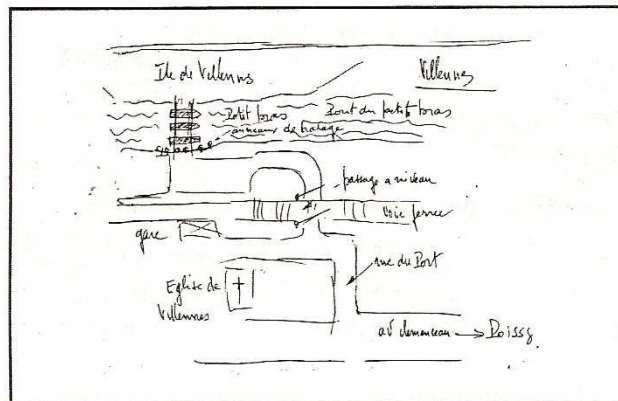 Ile de Villennes
Villennes
Petit bras
Pont du petit bras
anneaux de halage
passage a niveau
Voie ferree
gare
rue du Port
Eglise de
Villennes
av clemenceau → Poissy